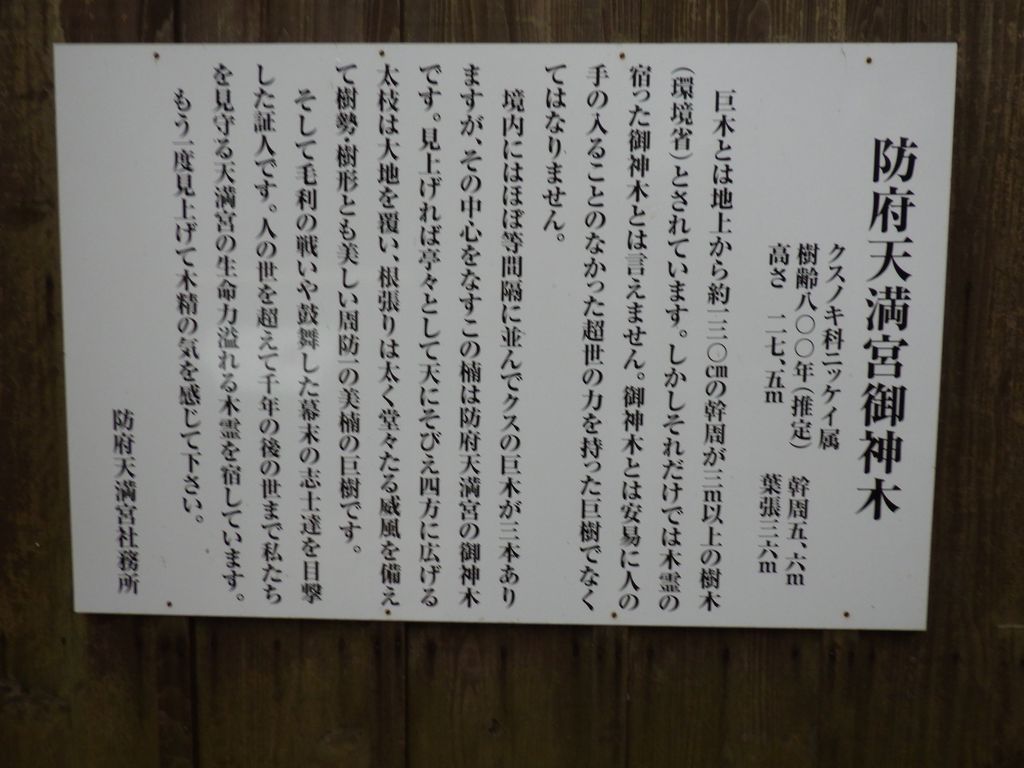 防府天満宮御神木
クスノキ科ニッケイ属
樹齢八〇〇年(推定) 幹周五、六m
高さ 二七、五m 葉張三六m
巨木とは地上から約一三〇cmの幹周が三m以上の樹木
(環境省)とされています。しかしそれだけでは木霊の
宿った御神木とは言えません。御神木とは安易に人の
手の入ることのなかった超世の力を持った巨樹でなく
てはなりません。
境内にはほぼ等間隔に並んでクスの巨木が三本あり
ますが、その中心をなすこの楠は防府天満宮の御神木
です。見上げれば亭々として天にそびえ四方に広げる
太枝は大地を覆い、根張りは太く堂々たる威風を備え
て樹勢・樹形とも美しい周防一の美楠の巨樹です。
そして毛利の戦いや鼓舞した幕末の志士達を目撃
した証人です。人の世を超えて千年の後の世まで私たち
を見守る天満宮の生命力溢れる木霊を宿しています。
もう一度見上げて木精の気を感じて下さい。
防府天満宮社務所